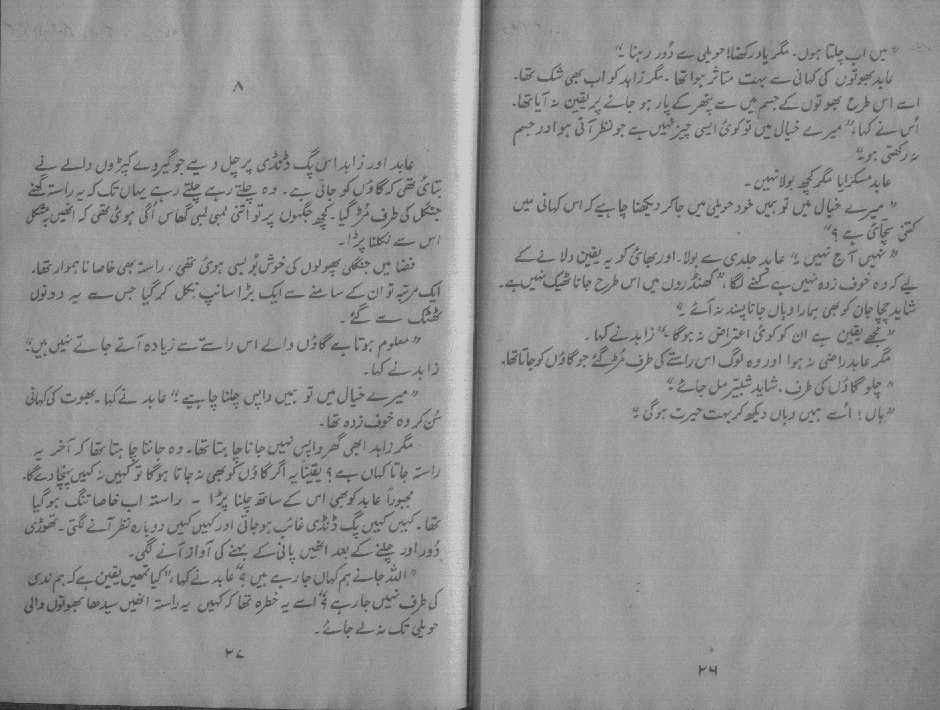 " میں اب چلتا ہوں۔ مگر یاد رکھنا! حویلی سے دُور رہنا ۔"
عابد بھوتوں کی کہانی سے بہت متاثر ہوا تھا ۔ مگر زاہد کو اب بھی شک تھا۔
اسے اس طرح بھوتوں کے جسم میں سے پتھر کے پار ہو جانے پر یقین نہ آیا تھا۔
اُس نے کہا، " میرے خیال میں تو کوئی ایسی چیز نہیں ہے جو نظر آتی ہو اور جسم
نہ رکھتی ہو۔"
عابد مسکرایا مگر کچھ بولا نہیں ۔
" میرے خیال میں تو ہمیں خود حویلی میں جا کر دیکھنا چاہیے کہ اس کہانی میں
کتنی سچائی ہے ؟"
" نہیں آج نہیں ۔" عابد جلدی سے بولا۔ اور بھائی کو یہ یقین دلانے کے
لیے کہ وہ خوف زدہ نہیں ہے کہنے لگا ، " کھنڈروں میں اس طرح جانا ٹھیک نہیں ہے۔
شاید چچا جان کو بھی ہمارا وہاں جانا پسند نہ آئے ۔"
" مجھے یقین ہے ان کو کوئی اعتراض نہ ہوگا ۔" زاہد نے کہا ۔
مگر عابد راضی نہ ہوا اور وہ لوگ اس راستے کی طرف مُڑ گئے جو گاؤں کو جاتا تھا۔
" چلو گاؤں کی طرف ۔ شاید شبیر مل جائے ۔"
" ہاں ! اُسے ہمیں وہاں دیکھ کر بہت حیرت ہوگی ۔"
۲۶
۸
عابد اور زاہد اس پگ ڈنڈی پر چل دیے جو گیروے کپڑوں والے نے
بتائی تھی کہ گاؤں کو جاتی ہے۔ وہ چلتے رہے چلتے رہے یہاں تک کہ یہ راستہ گھنے
جنگل کی طرف مُڑ گیا ۔ کچھ جگہوں پر تو اتنی لمبی لمبی گھاس اُگی ہوئی تھی کہ انھیں بمشکل
اس سے نکلنا پڑا۔
فضا میں جنگلی پھولوں کی خوش بُو بسی ہوئی تھی ، راستہ بھی خاصا ناہموار تھا۔
ایک مرتبہ تو ان کے سامنے سے ایک بڑا سانپ نکل کر گیا جس سے یہ دونوں
ٹھٹک سے گئے ۔
" معلوم ہوتا ہے گاؤں والے اس راستے سے زیادہ آتے جاتے نہیں ہیں۔"
زاہد نے کہا۔
" میرے خیال میں تو ہمیں واپس چلنا چاہیے ۔" عابد نے کہا ۔ بھوت کی کہانی
سُن کر وہ خوف زدہ تھا۔
مگر زاہد ابھی گھر واپس نہیں جانا چاہتا تھا۔ وہ جاننا چاہتا تھا کہ آخر یہ
راستہ جاتا کہاں ہے ؟ یقیناً یہ اگر گاؤں کو بھی نہ جاتا ہوگا تو کہیں نہ کہیں پہنچا دے گا۔
مجبوراً عابد کو بھی اس کے ساتھ چلنا پڑا - راستہ اب خاصا تنگ ہو گیا
تھا ۔ کہیں کہیں پگ ڈنڈی غائب ہو جاتی اور کہیں کہیں دوبارہ نظر آنے لگتی ۔ تھوڑی
دُور اور چلنے کے بعد انھیں پانی کے بہنے کی آواز آنے لگی۔
" اللہ جانے ہم کہاں جا رہے ہیں ؟" عابد نے کہا، " کیا تمھیں یقین ہے کہ ہم ندی
کی طرف نہیں جا رہے ؟" اسے یہ خطرہ تھا کہ کہیں یہ راستہ انھیں سیدھا بھوتوں والی
حویلی تک نہ لے جائے ۔
۲۷